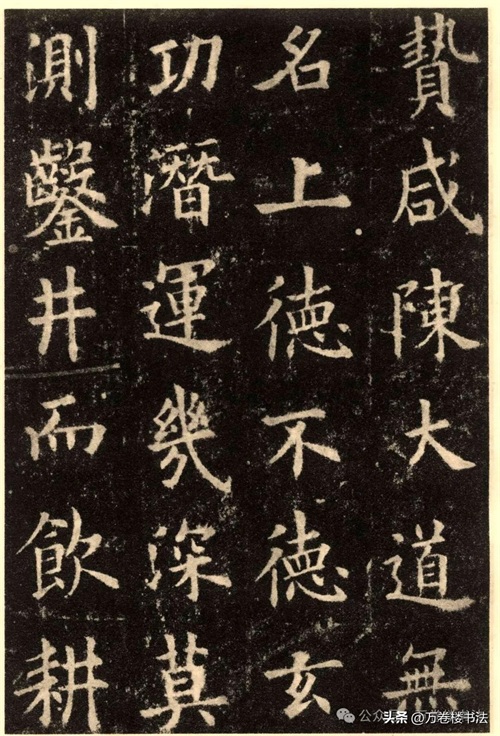 贄咸陳大道無
名上徳不徳玄
功潛運幾深莫
測鑿井而飲耕
头条 @万卷楼书法